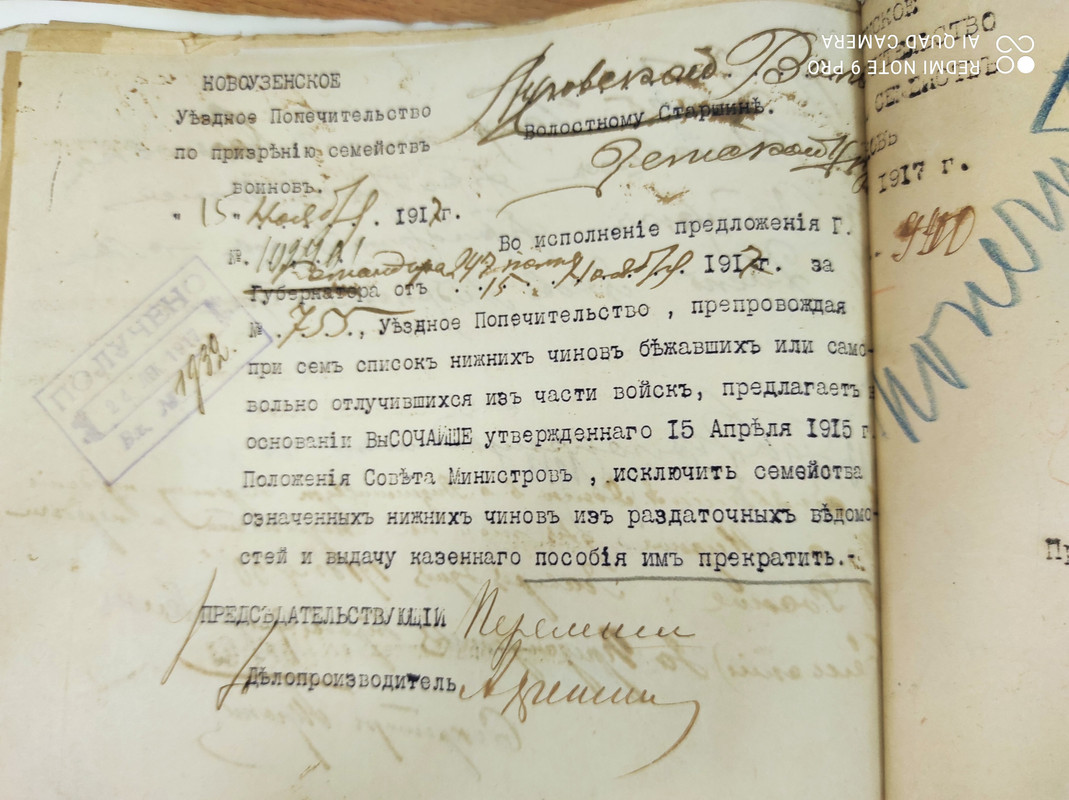 НОВОУЗЕНСКОЕ
Уѣздное Попечительство
по призрѣнію семействъ
воиновъ.
" 15 " Ноября . 1917г.
№.
Волостному Старшинѣ.
Земской
Во исполнение предложенія Г.
Командира 247 полка
Губернатора отъ 15 Ноября 1917г. за
№ 755., Уѣздное Попечительство , препровождая
при семъ списокъ нижнихъ чиновъ бѣжавшихъ или само-
вольно отлучившихся изъ части войскъ, предлагаетъ
основаніи ВЫСОЧАЙШЕ утвержденнаго 15 Апрѣля 1915 г
Положенія Совѣта Министровъ , исключить семейства
означенныхъ нижнихъ чиновъ изъ раздаточныхъ вѣдомо-
стей и выдачу казеннаго пособія имъ прекратить.-
ПРЕДСѢДАТЕЛЬСТВУЮЩІЙ
Дѣлопроизводитель
1932.
1917 г.
REDMI NOTE 9 PRO
AI QUAD CAMERA